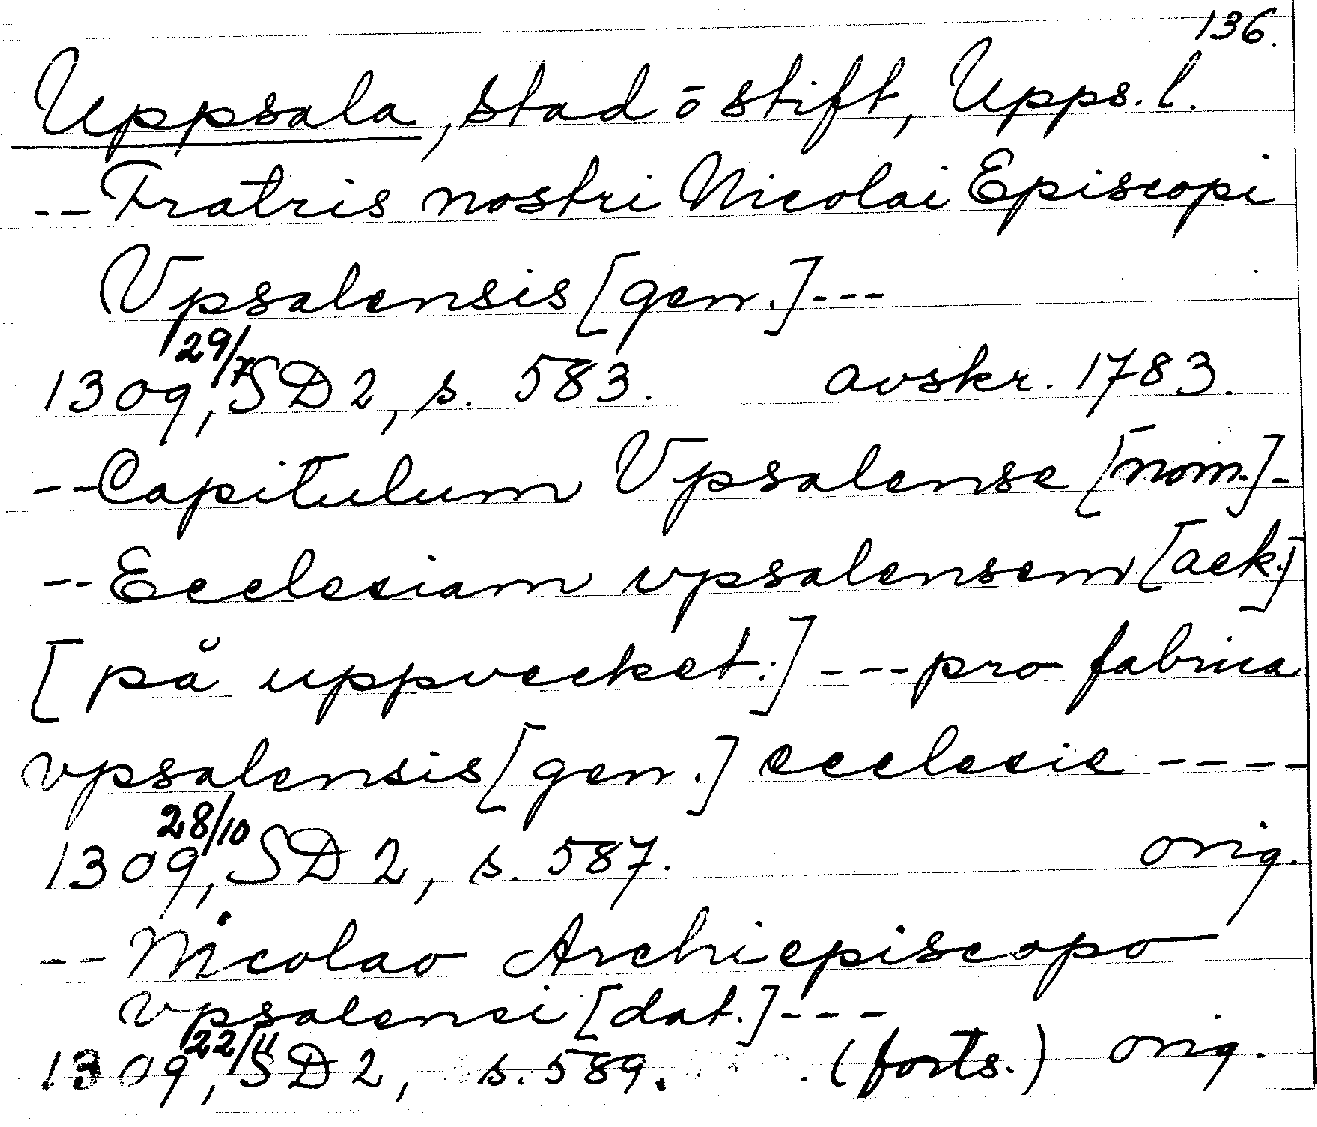 136.
Uppsala, stad o stift, Upps. l.
-- Fratris nostri Nicolai Episcopi
Vpsalensis [gen.] ---
1309 29/7, SD 2, s. 583. avskr. 1783.
-- Capitulum Vpsalense [nom.] -
-- Ecclesiam vpsalensem [ack.]
[på uppvecket:] --- pro fabrica
vpsalensis [gen.] ecclesie ----
1309 28/10, SD 2, s. 587. orig.
-- Nicolao Archiepiscopo
vpsalensi [dat.] ---
1309 22/11, SD 2, s. 589. (forts.) orig.